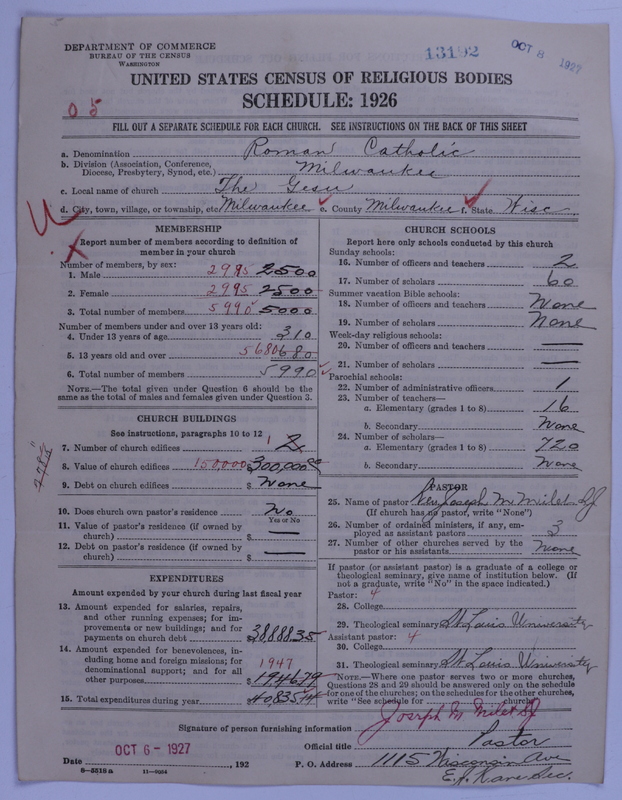 DEPARTMENT OF COMMERCE
BUREAU OF THE CENSUS
WASHINGTON
13192
OCT 8 1927
UNITED STATES CENSUS OF RELIGIOUS BODIES
SCHEDULE: 1926
05
FILL OUT A SEPARATE SCHEDULE FOR EACH CHURCH. SEE INSTRUCTIONS ON THE BACK OF THIS SHEET
a. Denomination Roman Catholic
b. Division (Association, Conference, Diocese, Presbytery, Synod, etc.) Milwaukee
c. Local name of church The Gesu
d. City, town, village, or township, etc Milwaukee e. County Milwaukee f. State Wisc.
MEMBERSHIP
Report number of members according to definition of
member in your church
Number of members, by sex:
1. Male 2995 2500
2. Female 2995 2500
3. Total number of members 5990 5000
Number of members under and over 13 years old:
4. Under 13 years of age 310
5. 13 years old and over 5680 680
6. Total number of members 5990
NOTE.—The total given under Question 6 should be the
same as the total of males and females given under Question 3.
CHURCH BUILDINGS
See instructions, paragraphs 10 to 12
7. Number of church edifices 1 2
8. Value of church edifices 150,000 $300,000.00
9. Debt on church edifices $ None
10. Does church own pastor's residence? No
Yes or No
11. Value of pastor's residence (if owned by
church) $ —
12. Debt on pastor's residence (if owned by
church) $ —
EXPENDITURES
Amount expended by your church during last fiscal year
13. Amount expended for salaries, repairs,
and other running expenses; for im-
provements or new buildings; and for
payments on church debt $38,888.35
14. Amount expended for benevolences, in-
cluding home and foreign missions; for
denominational support; and for all
other purposes 1947 $1946.79
15. Total expenditures during year $40,835.14
CHURCH SCHOOLS
Report here only schools conducted by this church
Sunday schools:
16. Number of officers and teachers 2
17. Number of scholars 60
Summer vacation Bible schools:
18. Number of officers and teachers None
19. Number of scholars None
Week-day religious schools:
20. Number of officers and teachers —
21. Number of scholars —
Parochial schools:
22. Number of administrative officers 1
23. Number of teachers—
a. Elementary (grades 1 to 8) 16
b. Secondary None
24. Number of scholars—
a. Elementary (grades 1 to 8) 720
b. Secondary None
PASTOR
25. Name of pastor Rev Joseph M Milet SJ
(If church has no pastor, write "None")
26. Number of ordained ministers, if any, em-
ployed as assistant pastors 3
27. Number of other churches served by the
pastor or his assistants None
If pastor (or assistant pastor) is a graduate of a college or
theological seminary, give name of institution below. (If
not a graduate, write "No" in the space indicated.)
Pastor: 4
28. College
29. Theological seminary St Louis University
Assistant pastor: 4
30. College
31. Theological seminary St Louis University
NOTE.—Where one pastor serves two or more churches,
Questions 28 and 29 should be answered only on the schedule
for one of the churches; on the schedules for the other churches,
write "See schedule for church."
Signature of person furnishing information Joseph M Milet SJ
Official title Pastor
OCT 6 - 1927
Date , 192
P. O. Address 1115 Wisconsin Ave
E. J. Kane Sec.
8—5518a 11—9064